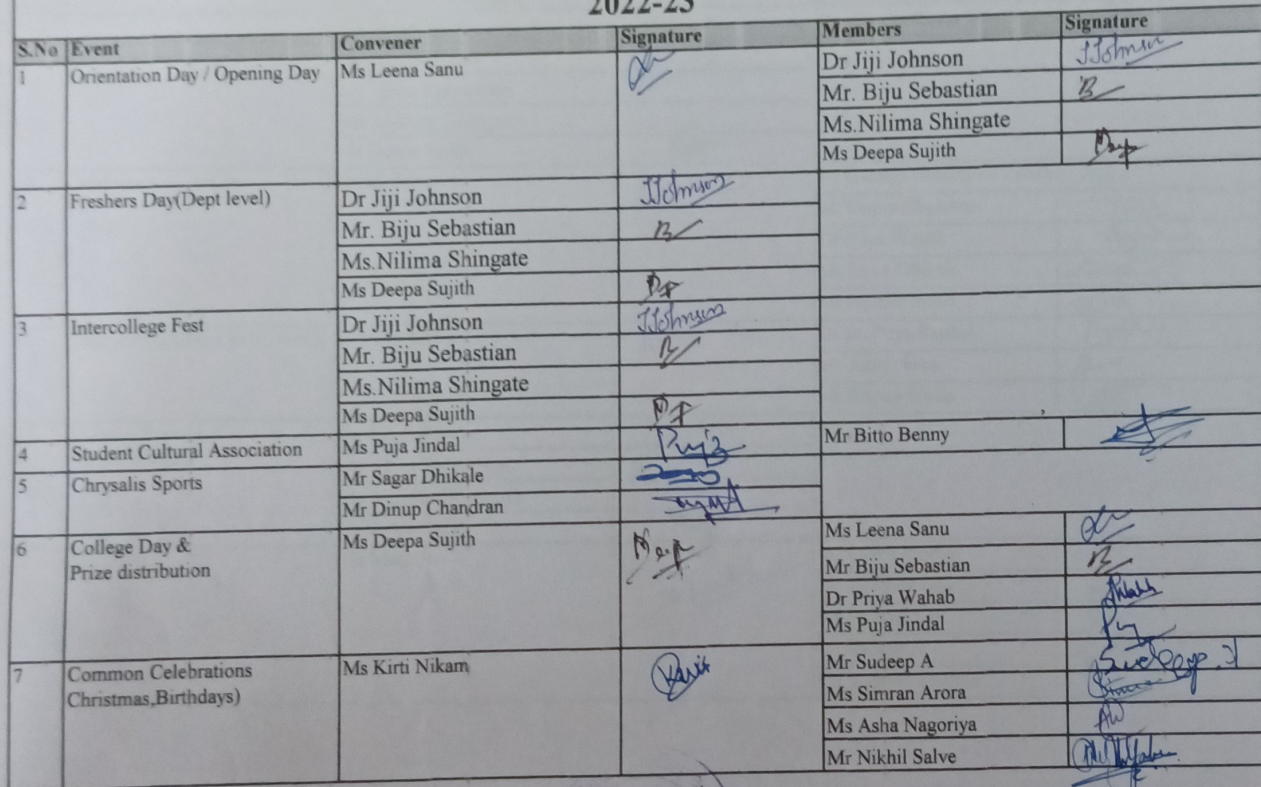 2022-23
S.No Event Convener Signature Members Signature
1 Orientation Day / Opening Day Ms Leena Sanu Dr Jiji Johnson JJohnson
Mr. Biju Sebastian B
Ms.Nilima Shingate
Ms Deepa Sujith
2 Freshers Day(Dept level) Dr Jiji Johnson JJohnson
Mr. Biju Sebastian B
Ms.Nilima Shingate
Ms Deepa Sujith
3 Intercollege Fest Dr Jiji Johnson JJohnson
Mr. Biju Sebastian B
Ms.Nilima Shingate
Ms Deepa Sujith
4 Student Cultural Association Ms Puja Jindal Puja Mr Bitto Benny
5 Chrysalis Sports Mr Sagar Dhikale
Mr Dinup Chandran
6 College Day & Ms Deepa Sujith Ms Leena Sanu
Prize distribution Mr Biju Sebastian B
Dr Priya Wahab
Ms Puja Jindal
7 Common Celebrations Ms Kirti Nikam Mr Sudeep A
Christmas,Birthdays) Ms Simran Arora
Ms Asha Nagoriya
Mr Nikhil Salve